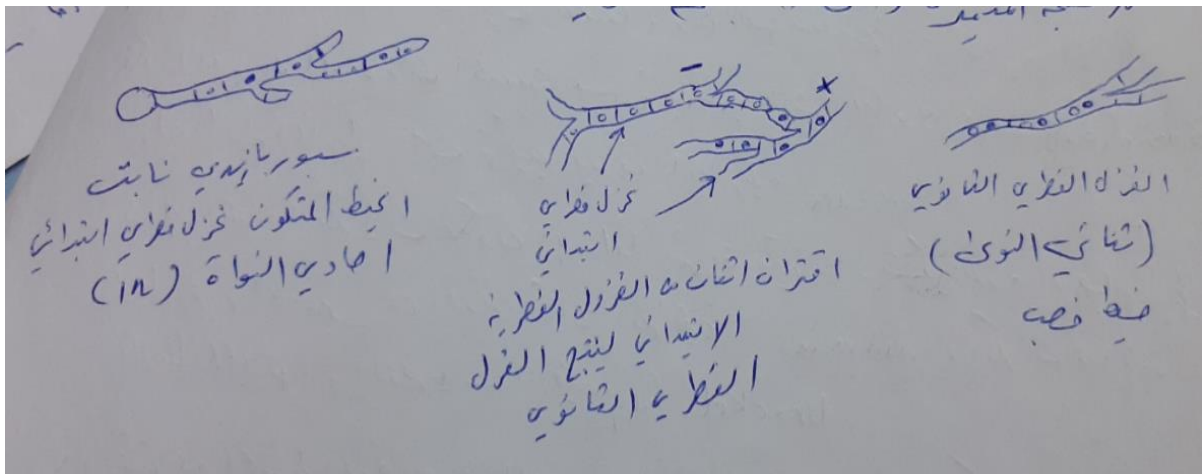 المديد
سبور بازيدي نابت
الخيط المتكون غزل فطري ابتدائي
احادي النواة (1n)
-
+
غزل فطري
ابتدائي
اقتران اثنان من الغزول الفطرية
الابتدائي لينتج الغزل
الفطري الثانوي
الغزل الفطري الثانوي
(ثنائي النوى)
خيط خصب